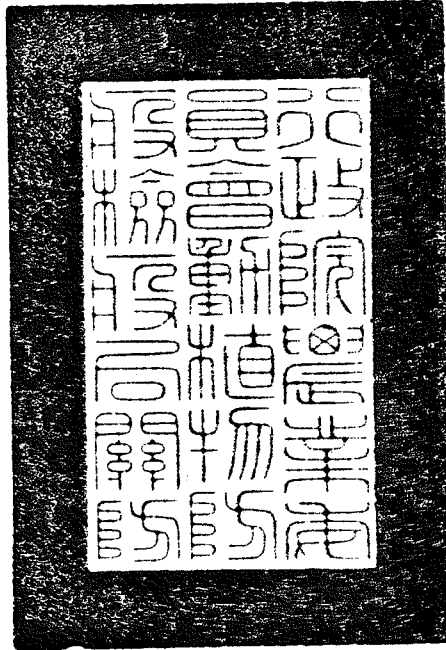 行政院農業委
員會動植物防
疫檢疫局關防